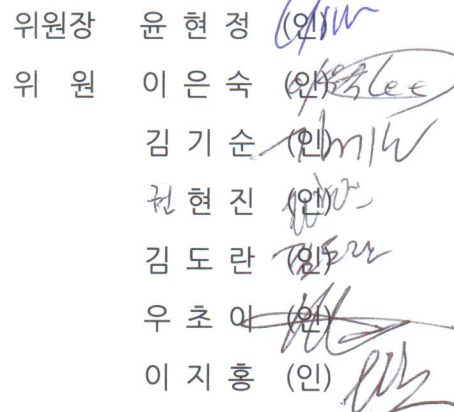 위원장 윤 현 정 (인)
위 원 이 은 숙 (인) Lee
김 기 순 (인)
권 현 진 (인)
김 도 란 (인) 김도란
우 초 아 (인)
이 지 홍 (인)